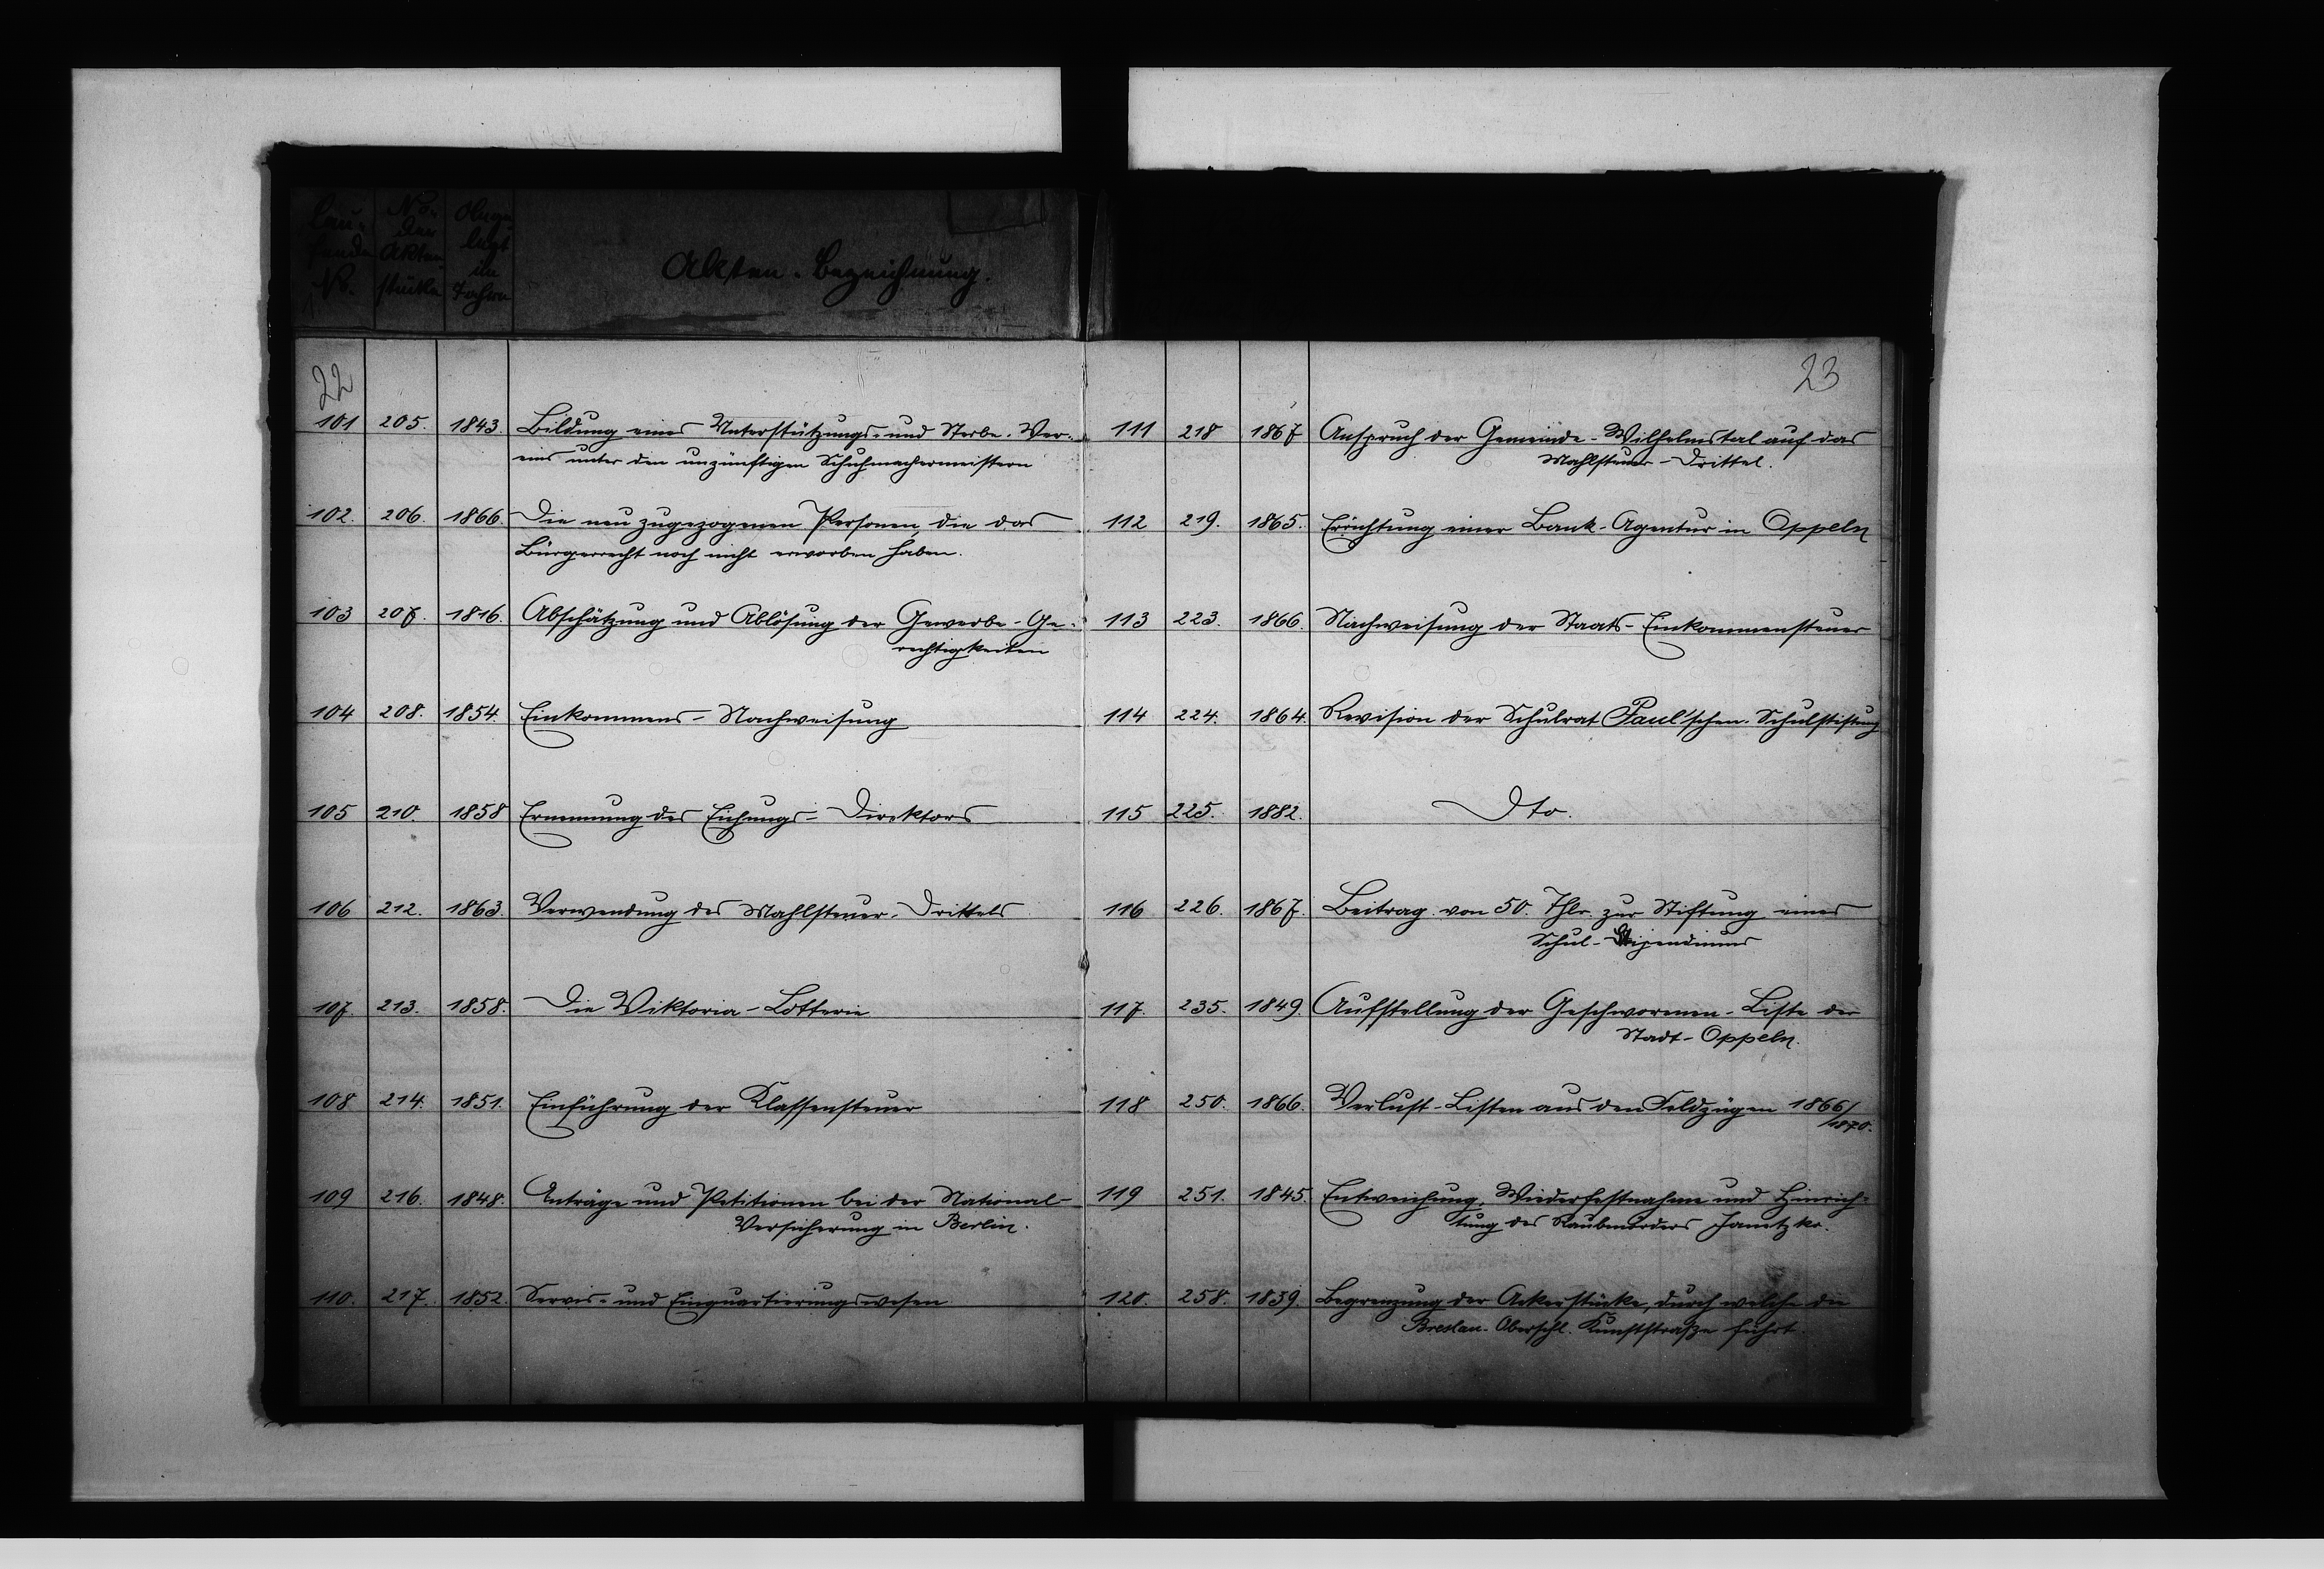 Lau-
fende
No.
No.
der
Akten-
stücke
Ange-
legt
im
Jahre
Akten-Bezeichnung.
22
101 205. 1843. Bildung eines Unterstützungs- und Sterbe-Ver-
eins unter den unzünftigen Schuhmachermeistern
102. 206. 1866. Die neu zugezogenen Personen, die das
Bürgerrecht noch nicht erworben haben.
103 207. 1816. Abschätzung und Ablösung der Gewerbe-Ge-
rechtigkeiten
104 208. 1854. Einkommens-Nachweisung
105 210 1858 Ernennung des Eichungs-Direktors
106 212. 1863. Verwendung des Mahlsteuer-Drittels
107. 213. 1858. Die Viktoria-Lotterie
108 214. 1851. Einführung der Klassensteuer
109 216. 1848. Anträge und Petitionen bei der National-
Versicherung in Berlin.
110. 217. 1852. Servis- und Einquartierungswesen
23
111 218 1867 Anspruch der Gemeinde-Wilhelmstal auf das
Mahlsteuer-Drittel.
112 219. 1865. Errichtung einer Bank-Agentur in Oppeln
113 223. 1866. Nachweisung der Staats-Einkommensteuer
114 224. 1864. Revision der Schulrat Paul'schen Schulstiftung
115 225. 1882. Dto.
116 226. 1867. Beitrag von 50. Thlr. zur Stiftung eines
Schul-Stipendiums
117. 235. 1849. Aufstellung der Geschworenen-Liste der
Stadt-Oppeln.
118 250. 1866. Verlust-Listen aus den Feldzügen 1866/
1870.
119 251. 1845. Entweichung, Wiederfestnahme und Hinrich-
tung des Raubmörders Janetzko.
120. 258. 1839. Begrenzung der Ackerstücke, durch welche die
Breslau-Oberschl. Kunststraße führt.